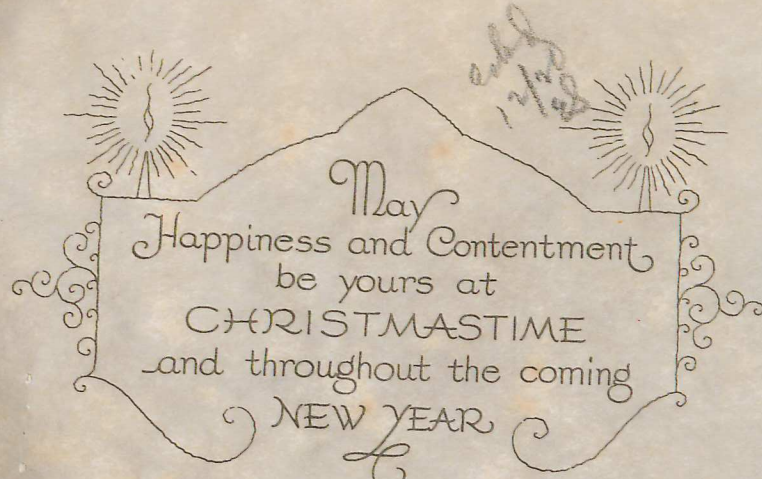 12/20
48
May
Happiness and Contentment
be yours at
CHRISTMASTIME
and throughout the coming
NEW YEAR